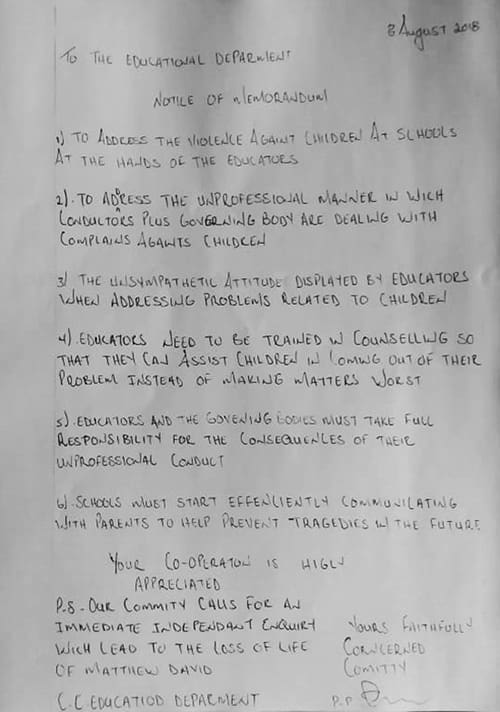 8 August 2018
TO THE EDUCATIONAL DEPARMENT
NOTILE OF MEMORANDUM
1) TO ADDRESS THE VIOLENCE AGAINT CHILDREN AT SCHOOLS
AT THE HANDS OF THE EDUCATORS
2). TO ADDRESS THE UNPROFESSIONAL MANNER IN WICH
CONDUCTORS PLUS GOVERNING BODY ARE DEALING WITH
COMPLAINS AGAINTS CHILDREN
3) THE UNSYMPATHETIC ATTITUDE DISPLAYED BY EDUCATORS
WHEN ADDRESSING PROBLEMS RELATED TO CHILDREN
4). EDUCATORS NEED TO BE TRAINED IN COUNSELLING SO
THAT THEY CAN ASSIST CHILDREN IN COMING OUT OF THEIR
PROBLEM INSTEAD OF MAKING MATTERS WORST
5). EDUCATORS AND THE GOVENING BODIES MUST TAKE FULL
RESPONSIBILITY FOR THE CONSEQUENCES OF THEIR
UNPROFESSIONAL CONDUCT
6). SCHOOLS MUST START EFFENCIENTLY COMMUNICATING
WITH PARENTS TO HELP PREVENT TRAGEDIES IN THE FUTURE
YOUR CO-OPERATON IS HIGLY
APPRECIATED
P.S. OUR COMMITY CALLS FOR AN
IMMEDIATE INDEPENDANT ENQUIRY
WICH LEAD TO THE LOSS OF LIFE
OF MATTHEW DAVID
YOURS FAITHFULLY
CORNCERNED
COMITTY
C.C. EDUCATIOD DEPARMENT
P.P